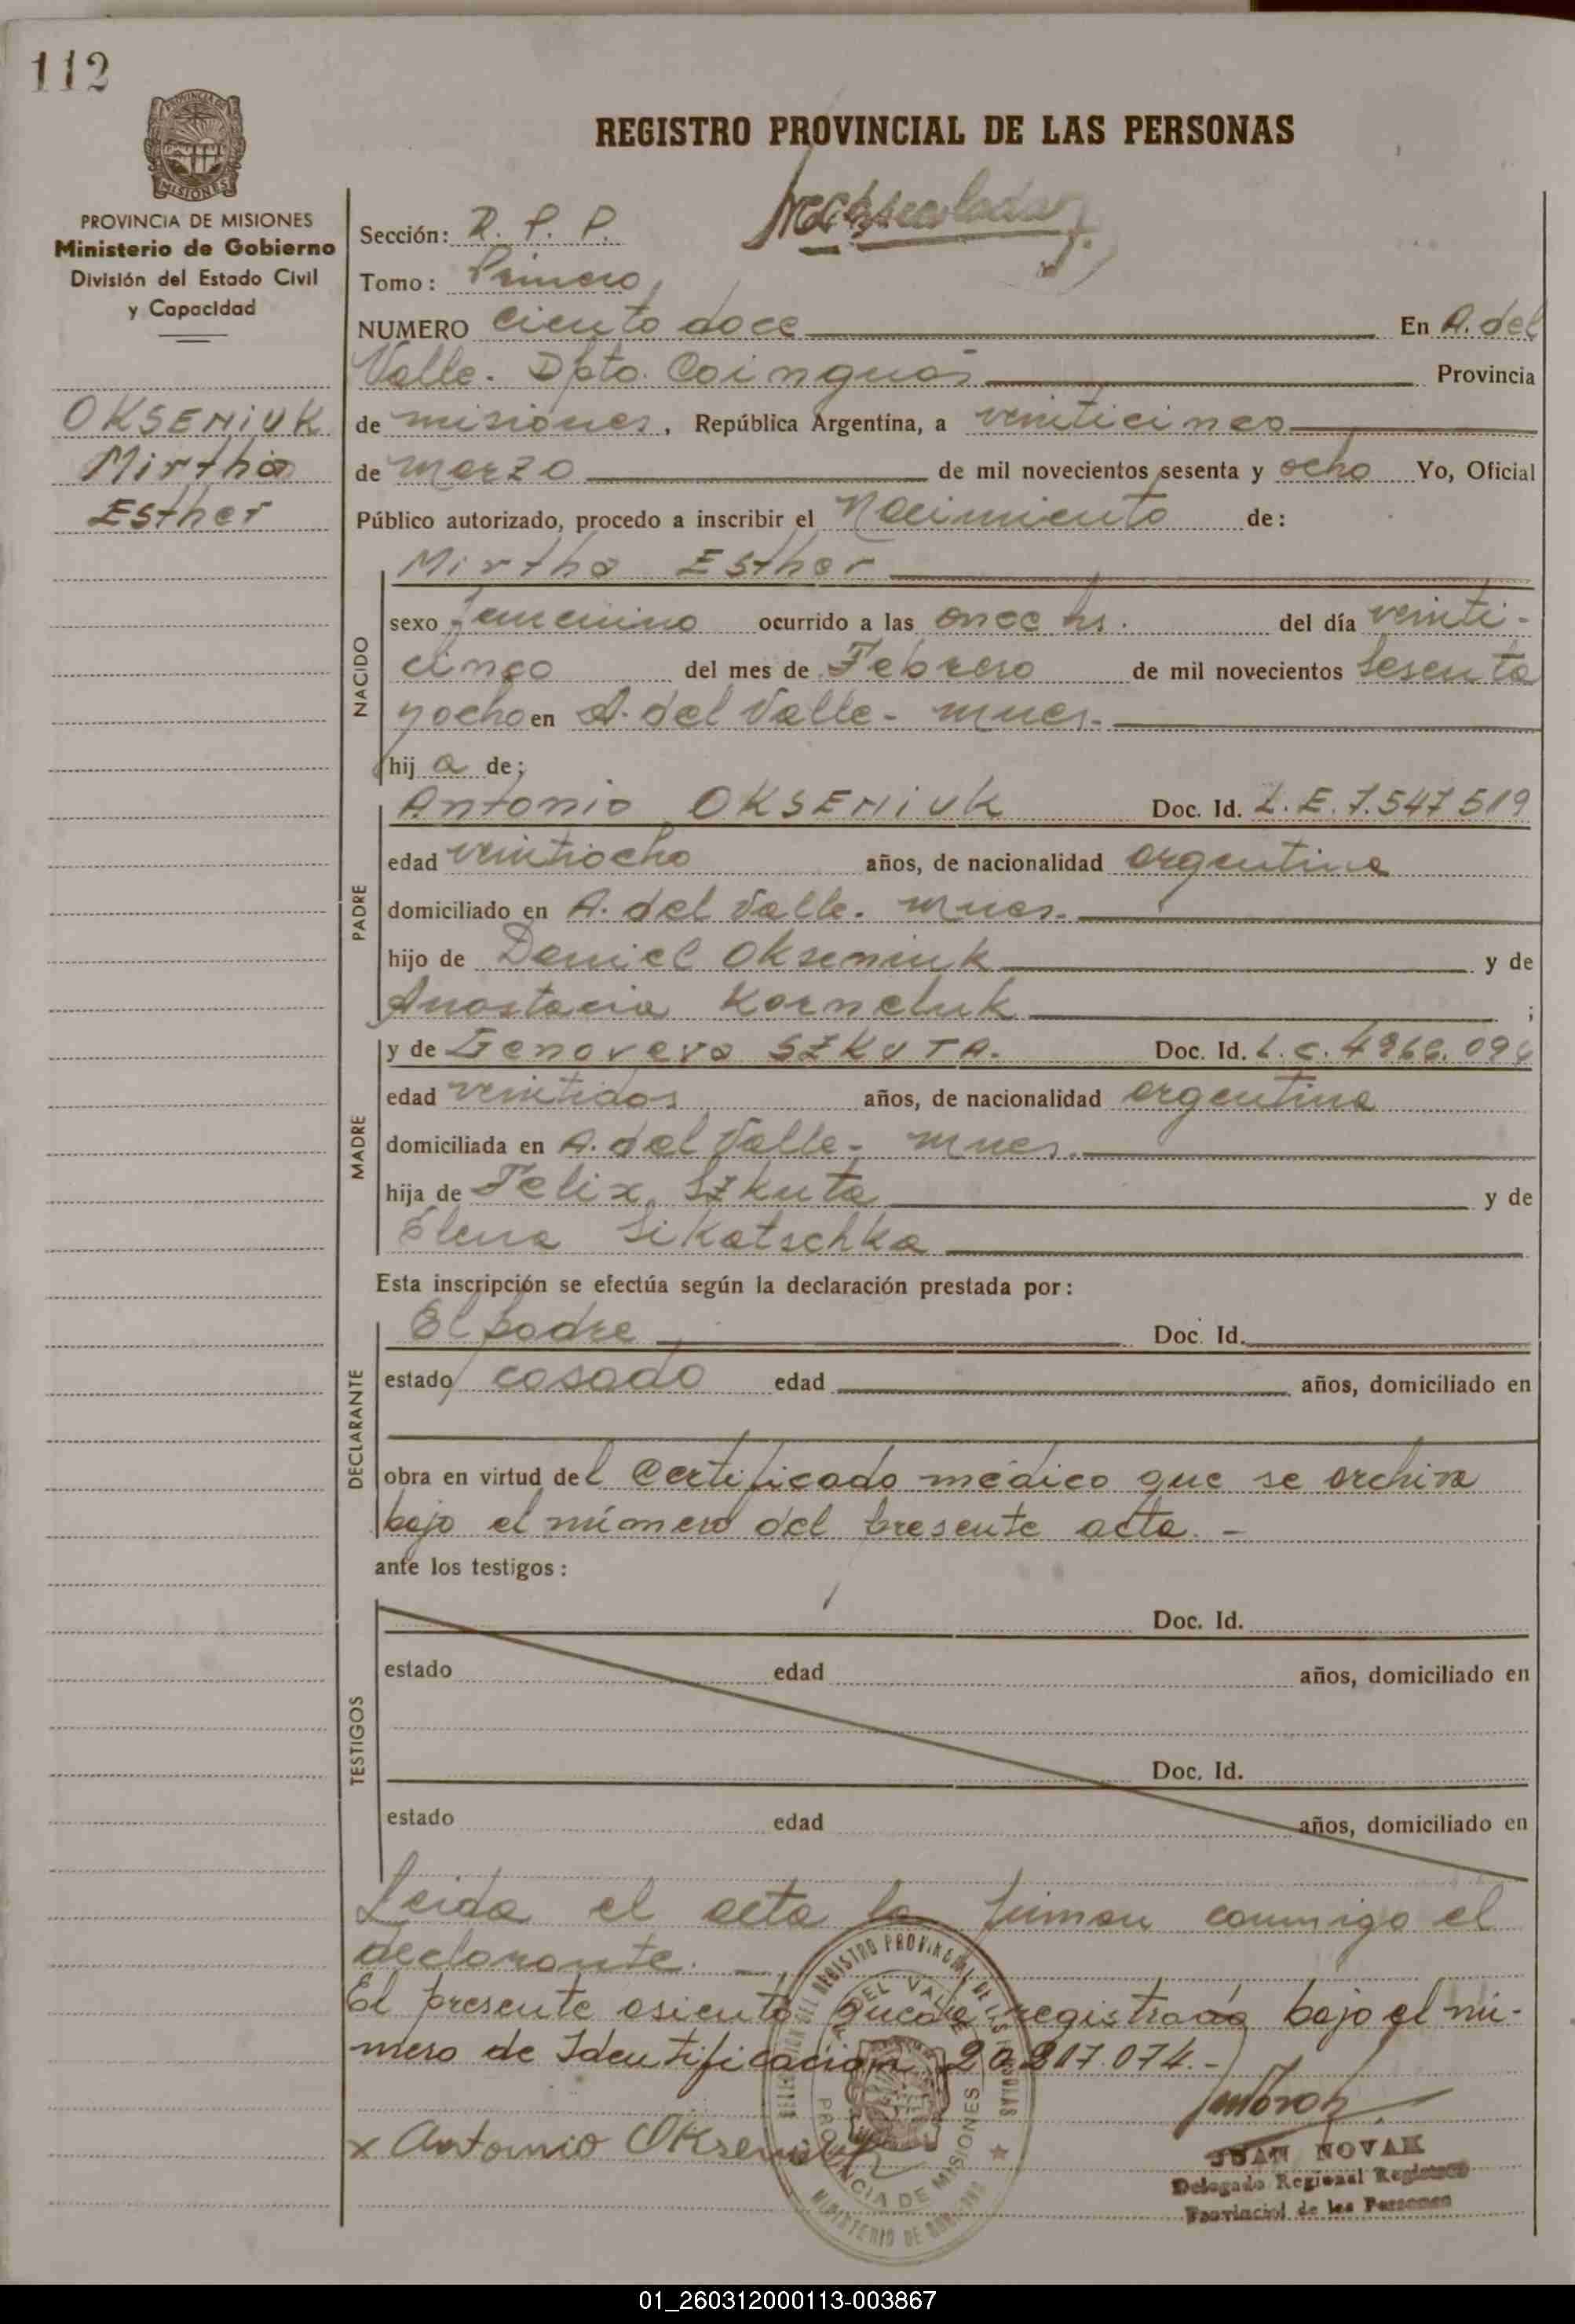 112
PROVINCIA DE MISIONES
MISIONES
PROVINCIA DE MISIONES
Ministerio de Gobierno
División del Estado Civil
y Capacidad
OKSENIUK
Mirtha
Esther
REGISTRO PROVINCIAL DE LAS PERSONAS
Sección: R. P. P.
Tomo: Primero
NUMERO Ciento doce En A. del
Valle. Dpto. Cainguás Provincia
de misiones, República Argentina, a veinticinco
de marzo de mil novecientos sesenta y ocho Yo, Oficial
Público autorizado, procedo a inscribir el Nacimiento de:
NACIDO
Mirtha Esther
sexo femenino ocurrido a las once hs. del día veinti-
cinco del mes de Febrero de mil novecientos sesenta
yocho en A. del Valle - mnes.
hij a de:
PADRE
Antonio OKSENIUK Doc. Id. L. E. 7.547519
edad veintiocho años, de nacionalidad argentina
domiciliado en A. del Valle. mnes.
hijo de Daniel Okseniuk y de
Anastacia Korneluk ;
MADRE
y de Genoveva SZKUTA. Doc. Id. L. C.
edad veintidos años, de nacionalidad argentina
domiciliada en A. del Valle - mnes.
hija de Felix Szkuta y de
Elena Sikatschka
Esta inscripción se efectúa según la declaración prestada por:
DECLARANTE
El padre Doc. Id.
estado casado edad años, domiciliado en
obra en virtud del Certificado médico que se archiva
bajo el número del presente acta. -
ante los testigos:
TESTIGOS
Doc. Id.
estado edad años, domiciliado en
Doc. Id.
estado edad años, domiciliado en
Leida el acta la firman conmigo el
declarante. -
El presente asiento queda registrado bajo el nú-
mero de Identificación 20.217.074.-
x Antonio Okseniuk
JUAN NOVAK
Delegado Regional Registro
Provincial de las Personas
01_260312000113-003867